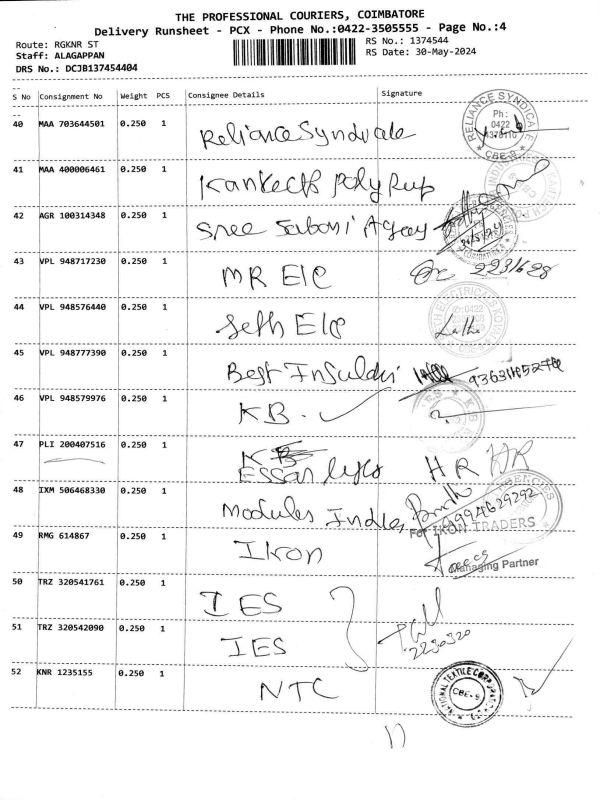 THE PROFESSIONAL COURIERS, COIMBATORE
Delivery Runsheet - PCX - Phone No.:0422-3505555 - Page No.:4
Route: RGKNR ST
RS No.: 1374544
Staff: ALAGAPPAN
RS Date: 30-May-2024
DRS No.: DCJB137454404
S No Consignment No Weight PCS Consignee Details Signature
40 MAA 703644501 0.250 1 Reliance Syndicate
RELIANCE SYNDICATE
Ph:
0422
CBE-9
41 MAA 400006461 0.250 1 Kankech Poly Rup
42 AGR 100314348 0.250 1 Sree Saboni Agey
30/5/24
43 VPL 948717230 0.250 1 MR Elc 2231628
44 VPL 948576440 0.250 1 Seth Elc Latha
45 VPL 948777390 0.250 1 Best Insuldi
46 VPL 948579976 0.250 1 KB.
47 PLI 200407516 0.250 1 KB
Essar HR HR
48 IXM 506468330 0.250 1 Modules India
9994629292
49 RMG 614867 0.250 1 Ikron
For IKON TRADERS
Managing Partner
50 TRZ 320541761 0.250 1 IES
51 TRZ 320542090 0.250 1 IES
2230320
52 KNR 1235155 0.250 1 NTC
NATIONAL TEXTILE CORPORATION
CBE-9